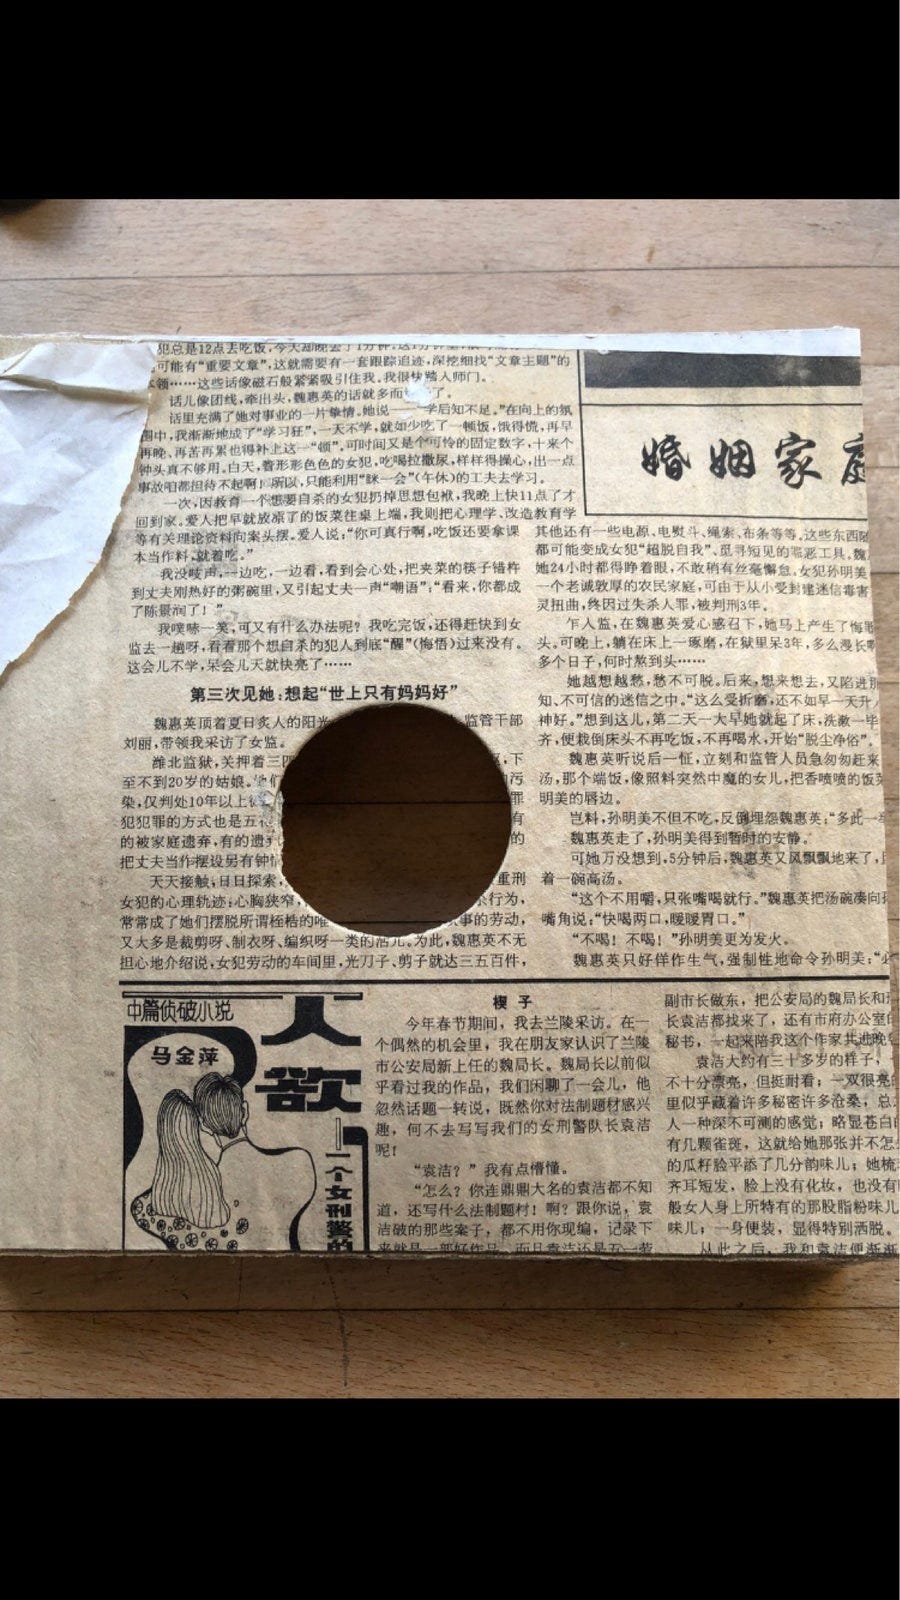 犯总是12点去吃饭,今天却晚去了1分钟,这1分钟里
可能有“重要文章”,这就需要有一套跟踪追迹,深挖细找“文章主题”的
领……这些话像磁石般紧紧吸引住我。我很快踏入师门。
话儿像团线,牵出头,魏惠英的话就多而 了。
话里充满了她对事业的一片挚情。她说——“学后知不足。”在向上的氛
围中,我渐渐地成了“学习狂”,一天不学,就如少吃了一顿饭,饿得慌,再早
再晚、再苦再累也得补上这一“顿”。可时间又是个可怜的固定数字,十来个
钟头真不够用。白天,管形形色色的女犯,吃喝拉撒尿,样样得操心,出一点
事故咱都担待不起啊!所以,只能利用“眯一会”(午休)的工夫去学习。
一次,因教育一个想要自杀的女犯扔掉思想包袱,我晚上快11点了才
回到家。爱人把早就放凉了的饭菜往桌上端,我则把心理学、改造教育学
等有关理论资料向案头摆。爱人说:“你可真行啊,吃饭还要拿课
本当作料,就着吃。”
我没吱声,一边吃,一边看,看到会心处,把夹菜的筷子错杵
到丈夫刚热好的粥碗里,又引起丈夫一声“潮语”:“看来,你都成
了陈景润了!”
我噗哧一笑,可又有什么办法呢?我吃完饭,还得赶快到女
监去一趟呀,看看那个想自杀的犯人到底“醒”(悔悟)过来没有。
这会儿不学,呆会儿天就快亮了……
第三次见她:想起“世上只有妈妈好”
魏惠英顶着夏日炙人的阳光 监管干部
刘丽,带领我采访了女监。
潍北监狱,关押着三四 ,下
至不到20岁的姑娘。她们 污
染,仅判处10年以上徒 罪
犯犯罪的方式也是五花 有
的被家庭遗弃,有的遗弃 的
把丈夫当作摆设另有钟情
天天接触,日日探索, 重刑
女犯的心理轨迹:心胸狭窄, 杀行为,
常常成了她们摆脱所谓桎梏的唯 事的劳动,
又大多是裁剪呀、制衣呀、编织呀一类的活儿。为此,魏惠英不无
担心地介绍说,女犯劳动的车间里,光刀子、剪子就达三五百件,
婚姻家庭
其他还有一些电源、电熨斗、绳索、布条等等。这些东西随
都可能变成女犯“超脱自我”、觅寻短见的罪恶工具。魏
她24小时都得睁着眼,不敢稍有丝毫懈怠。女犯孙明美
一个老诚敦厚的农民家庭,可由于从小受封建迷信毒害
灵扭曲,终因过失杀人罪,被判刑3年。
乍人监,在魏惠英爱心感召下,她马上产生了悔罪
头。可晚上,躺在床上一琢磨,在狱里呆3年,多么漫长啊
多个日子,何时熬到头……
她越想越愁,愁不可脱。后来,想来想去,又陷进那
知、不可信的迷信之中。“这么受折磨,还不如早一天升
神好。”想到这儿,第二天一大早她就起了床,洗漱一毕
齐,便栽倒床头不再吃饭,不再喝水,开始“脱尘净俗”。
魏惠英听说后一怔,立刻和监管人员急匆匆赶来
汤,那个端饭,像照料突然中魔的女儿,把香喷喷的饭菜
明美的唇边。
岂料,孙明美不但不吃,反倒埋怨魏惠英:“多此一举
魏惠英走了,孙明美得到暂时的安静。
可她万没想到,5分钟后,魏惠英又风飘飘地来了,
着一碗高汤。
“这个不用嚼,只张嘴喝就行。”魏惠英把汤碗凑向孙
嘴角说:“快喝两口,暖暖胃口。”
“不喝!不喝!”孙明美更为发火。
魏惠英只好佯作生气,强制性地命令孙明美:“必
中篇侦破小说
马金萍
人欲
——一个女刑警的
楔子
今年春节期间,我去兰陵采访。在一
个偶然的机会里,我在朋友家认识了兰陵
市公安局新上任的魏局长。魏局长以前似
乎看过我的作品,我们闲聊了一会儿,他
忽然话题一转说,既然你对法制题材感兴
趣,何不去写写我们的女刑警队长袁洁
呢!
“袁洁?”我有点懵懂。
“怎么?你连鼎鼎大名的袁洁都不知
道,还写什么法制题材!啊?跟你说,袁
洁破的那些案子,都不用你现编,记录下
来就是一部好作品。而且袁洁还是五一劳
副市长做东,把公安局的魏局长和
长袁洁都找来了,还有市府办公室
秘书,一起来陪我这个作家共进晚
袁洁大约有三十多岁的样子,
不十分漂亮,但挺耐看:一双很亮
里似乎藏着许多秘密许多沧桑,总
人一种深不可测的感觉;略显苍白
有几颗雀斑,这就给她那张并不怎
的瓜籽脸平添了几分韵味儿;她梳
齐耳短发,脸上没有化妆,也没有
般女人身上所特有的那股脂粉味儿
味儿;一身便装,显得特别洒脱。
从此之后,我和袁洁便渐渐